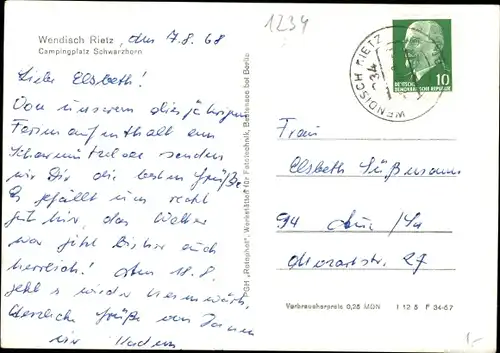 Wendisch Rietz, den 7.8.68
Campingplatz Schwarzhorn
1234
Liebe Elsbeth!
Von unserem diesjährigen
Ferienaufenthalt am
Scharmützelsee senden
wir Dir die besten Grüße.
Es gefällt uns recht
gut hier, das Wetter
war jetzt bisher auch
herrlich! Am 18.8.
geht's wieder heimwärts.
Herzliche Grüße von
WENDISCH RIETZ
DEUTSCHE
DEMOKRATISCHE REPUBLIK
10
Frau
Elsbeth Süßmann
94 Aue/Sa
Mozartstr. 27
PGH „Rotophot", Werkstätten für Fototechnik, Bestensee bei Berlin
Verbraucherpreis 0,25 MDN I 12 5 F 34-67
1,-